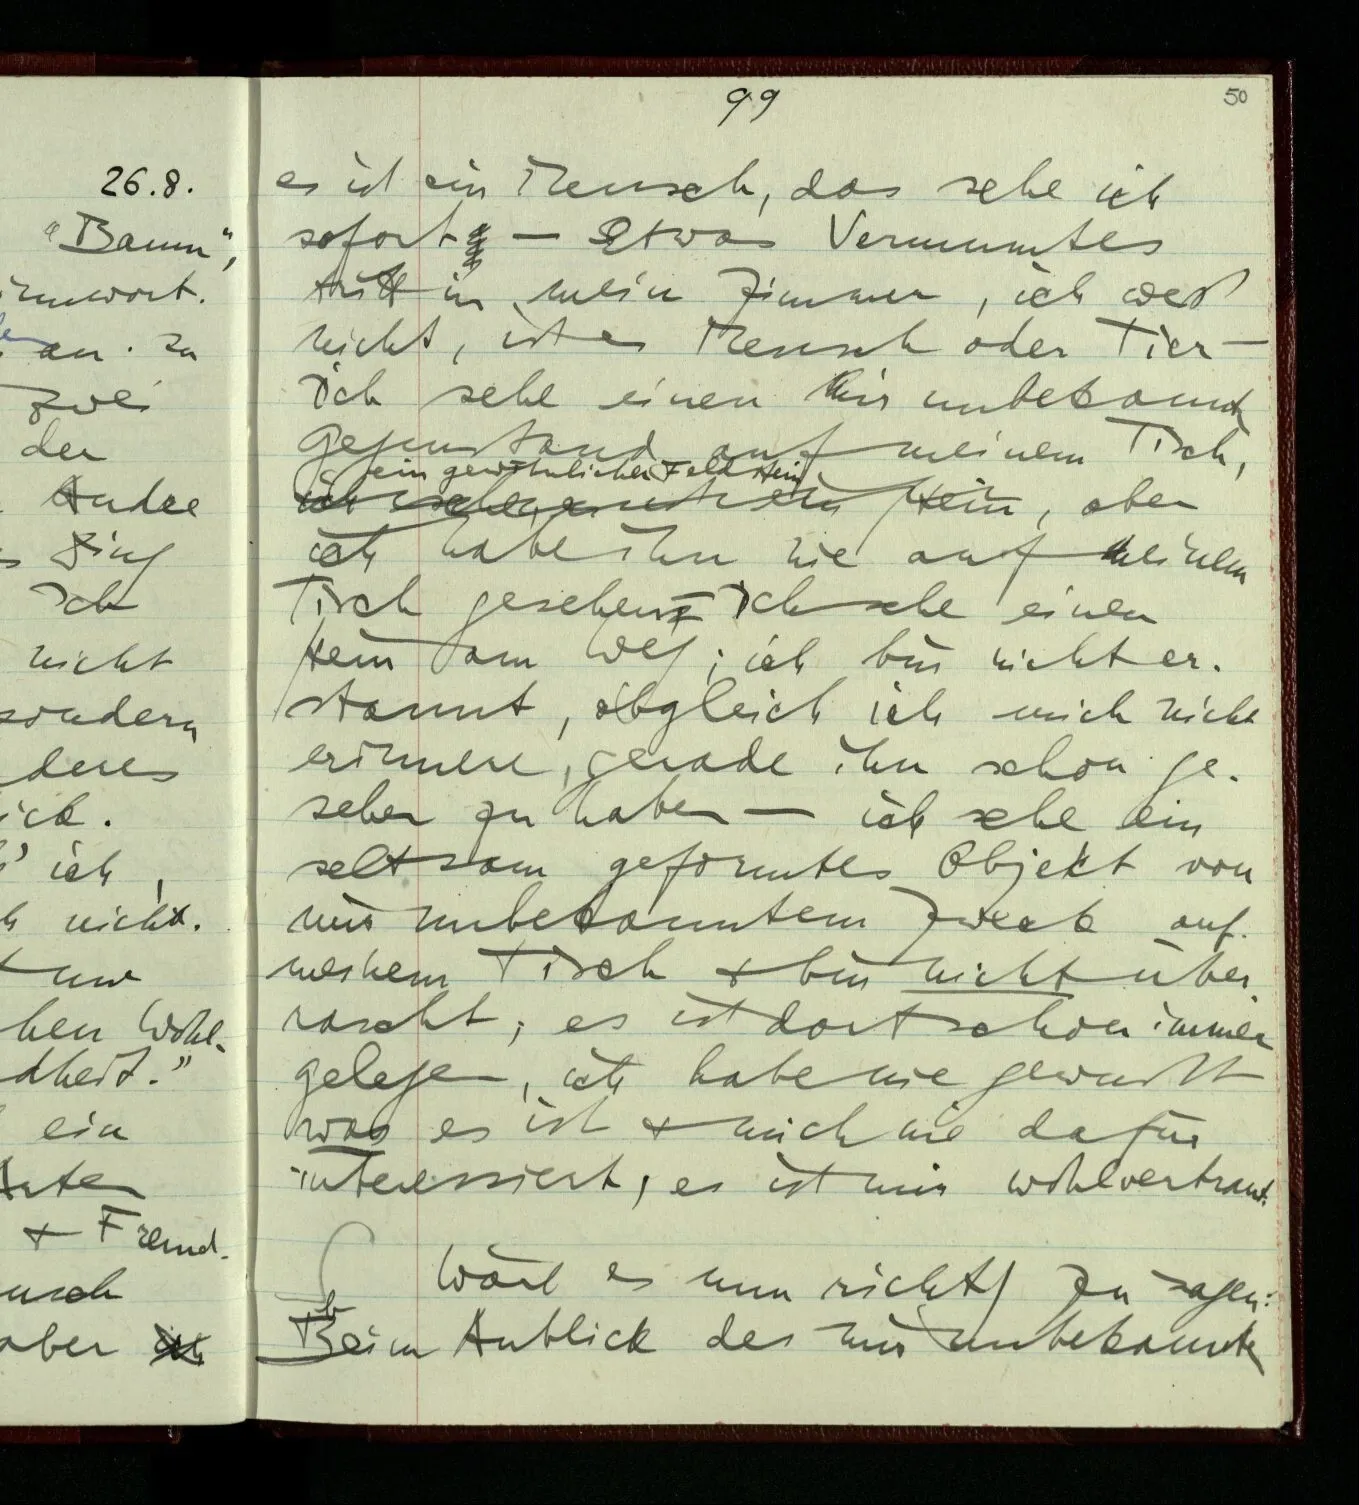 99
50
26.8.
"Baum",
an. zu
zwei
der
Andre
Ding
Ich
nicht
sondern
deres
ich,
nicht.
hen Wohl-
dheit."
ein
+ Fremd-
aber
es ist ein Mensch, das sehe ich
sofort — Etwas Vermummtes
tritt in mein Zimmer, ich weiß
nicht, ist es Mensch oder Tier —
Ich sehe einen mir unbekannten
Gegenstand auf meinem Tisch,
ein gewöhnlicher Feldstein
Stein, aber
ich habe ihn nie auf meinem
Tisch gesehen — Ich sehe einen
Stein am Weg; ich bin nicht er-
staunt, obgleich ich mich nicht
erinnere, gerade ihn schon ge-
sehen zu haben — ich sehe ein
seltsam geformtes Objekt von
mir unbekanntem Zweck auf
meinem Tisch + bin nicht über-
rascht; es ist dort schon immer
gelegen, ich habe nie gewußt
was es ist + mich nie dafür
interessiert, es ist mir wohlvertraut.
Wäre es nun richtig zu sagen:
Beim Anblick des mir unbekannten